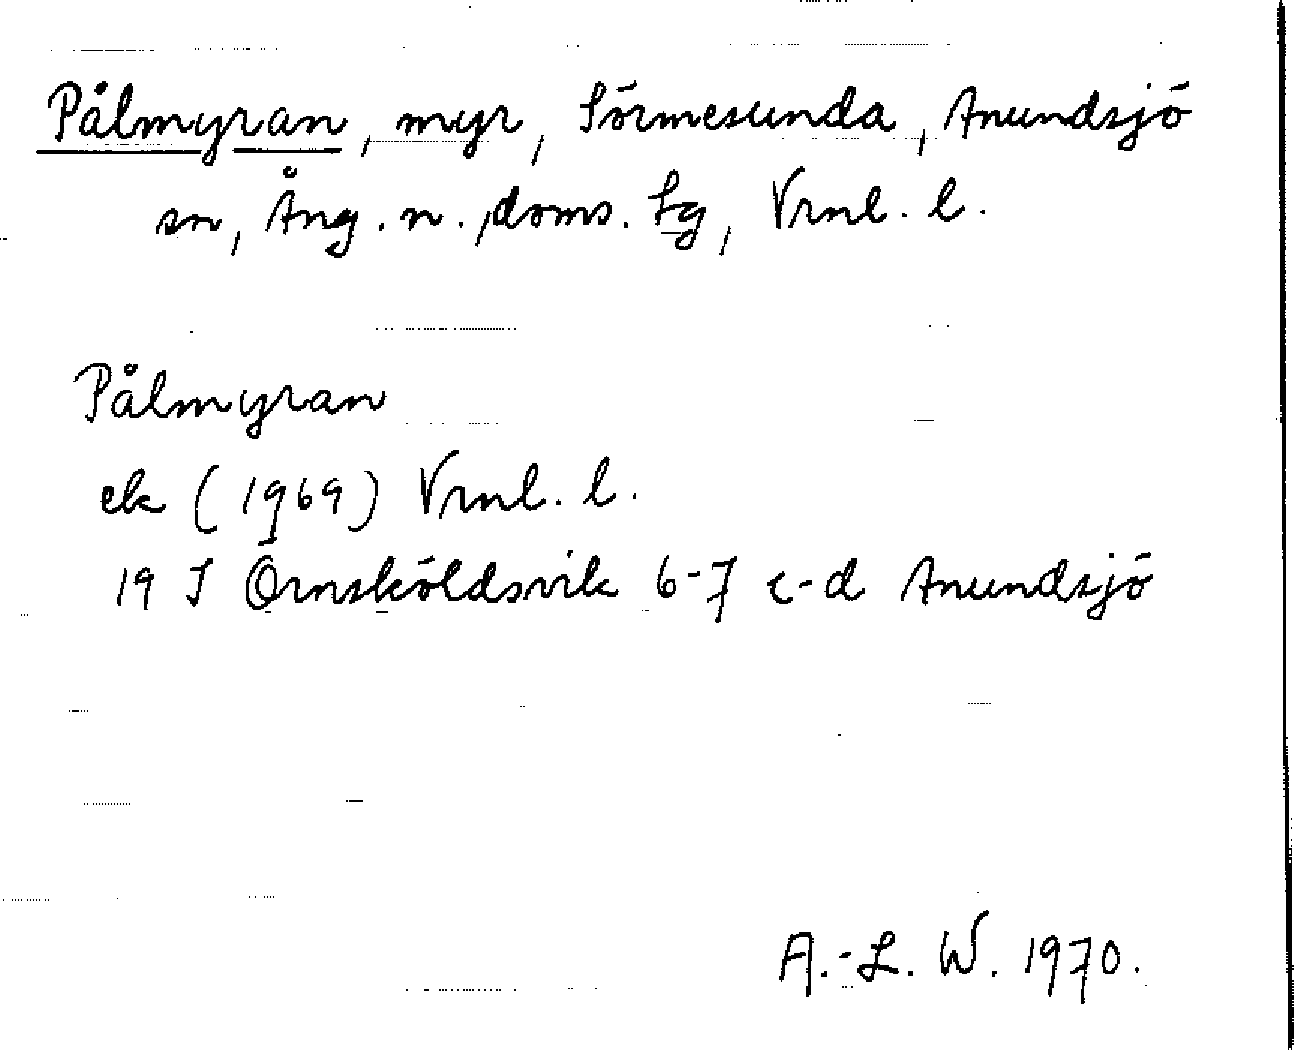 Pålmyran, myr, Sörmesunda, Anundsjö
sn, Ång. n., doms. sg, Vrnl. l.
Pålmyran
ek (1969) Vrnl. l.
19 J Örnsköldsvik 6-7 c-d Anundsjö
A.-L. W. 1970.